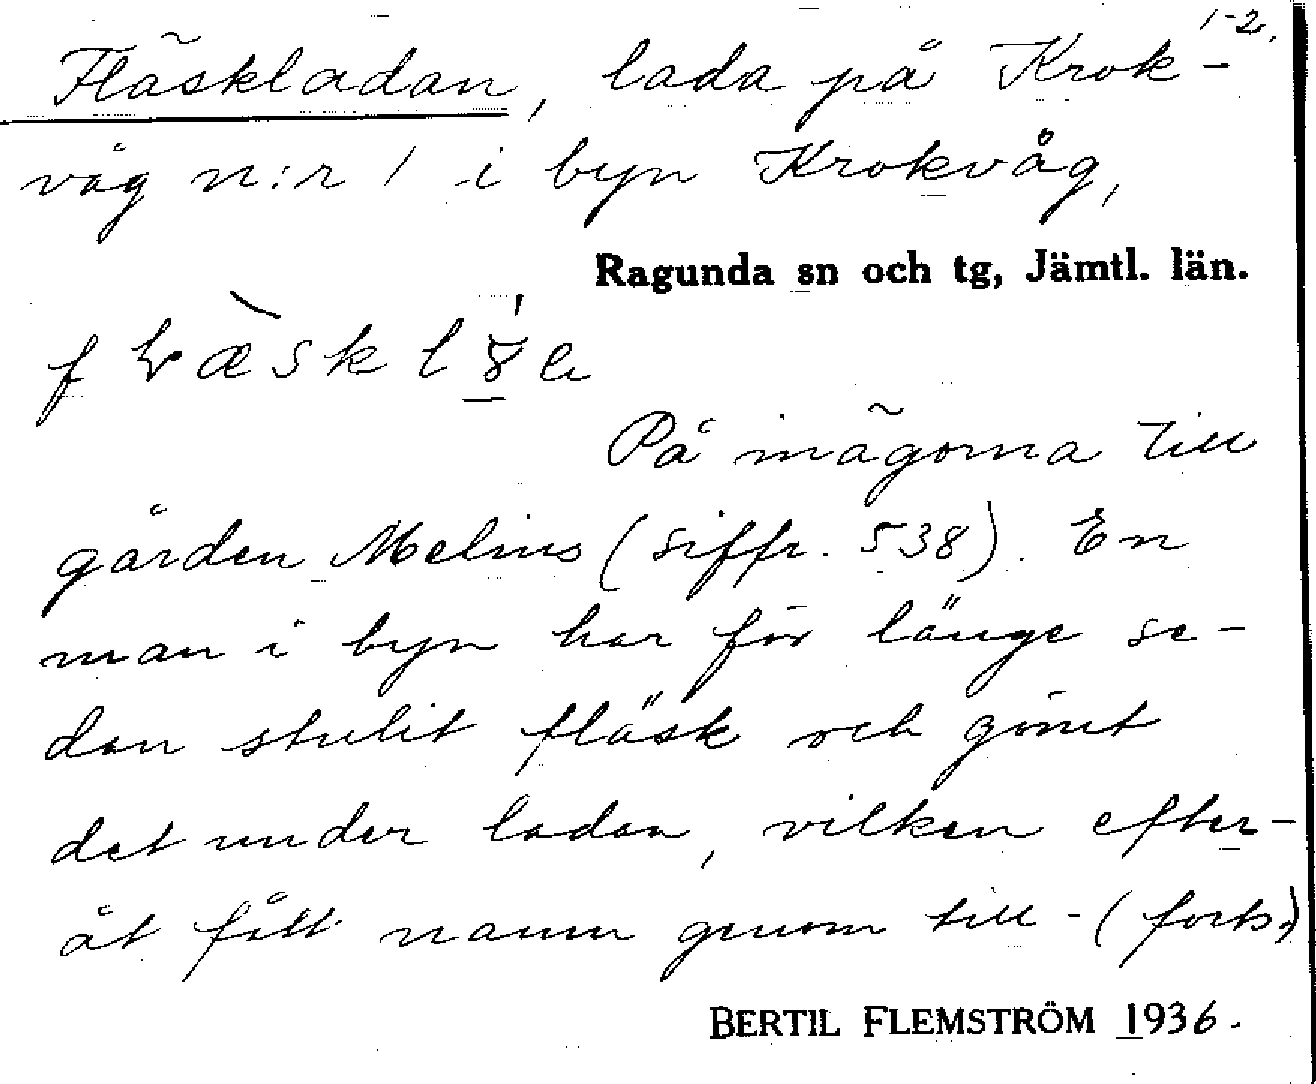 1-2.
Fläskladan, lada på Krok-
våg n:r 1 i byn Krokvåg,
Ragunda sn och tg, Jämtl. län.
På inägorna till
gården Melins (siffr. 538). En
man i byn har för länge se-
dan stulit fläsk och gömt
det under ladan, vilken efter-
åt fått namn genom till- (forts.)
BERTIL FLEMSTRÖM 1936.